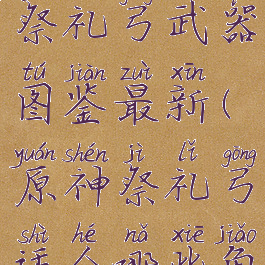 祭礼弓武器
tú jiàn zuì xīn
图鉴最新(
yuán shén jì lǐ gōng
原神祭礼弓
shì hé nǎ xiē jiǎo
适合哪些角